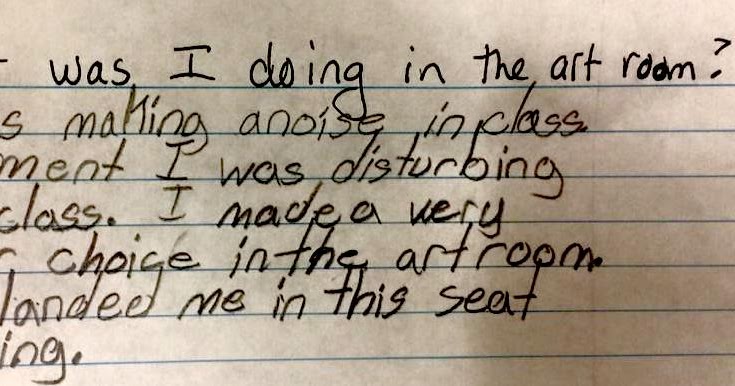 was I doing in the art room?
s making anoise in class
ment I was disturbing
class. I made a very
r choice in the art room.
landed me in this seat
ing.